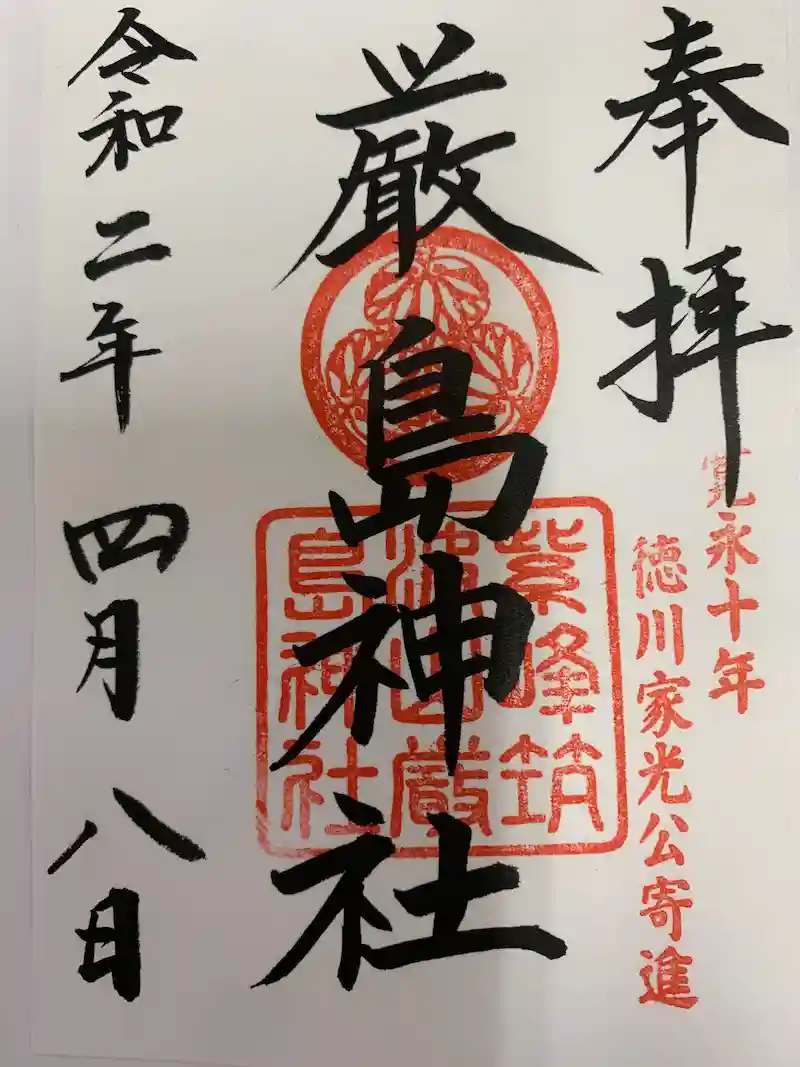 奉拝
寛永十年
徳川家光公寄進
厳島神社
紫峰筑
波山厳
島神社
令和二年四月八日